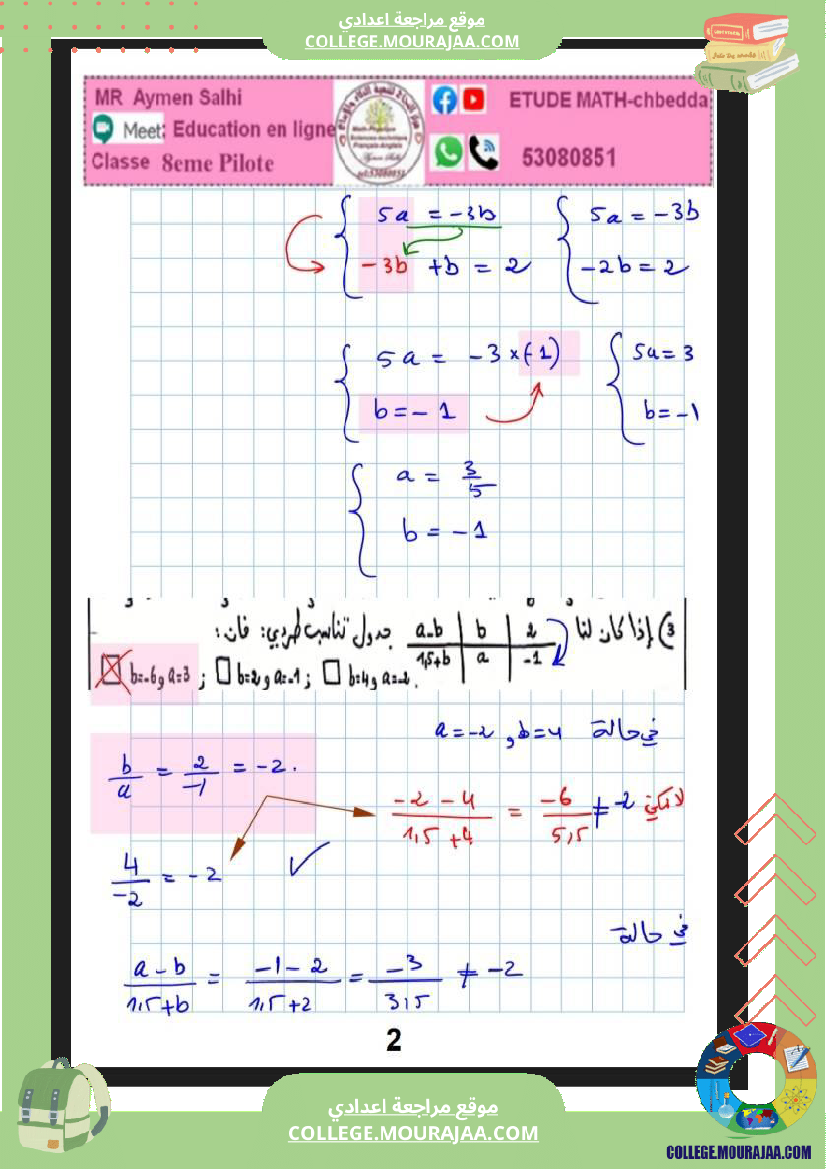 موقع مراجعة اعدادي
COLLEGE.MOURAJAA.COM
MR Aymen Salhi
Meet: Education en ligne
Classe 8eme Pilote
ETUDE MATH-chbedda
53080851
5a = -3b
-3b +b = 2
5a = -3b
-2b = 2
5a = -3 × (-1)
b = -1
5a = 3
b = -1
a = 3/5
b = -1
3) إذا كان لنا
a-b | b | 2
1,5+b | a | -1
جدول تناسب طردي: فان:
b=-6 و a=3 ; b=2 و a=-1 ; b=4 و a=-2.
في حالة a=-2 و b=4
b/a = 2/-1 = -2.
(-2-4)/(1,5+4) = -6/5,5 ≠ -2 لا يمكن
4/-2 = -2 ✓
في حالة
(a-b)/(1,5+b) = (-1-2)/(1,5+2) = -3/3,5 ≠ -2
2
موقع مراجعة اعدادي
COLLEGE.MOURAJAA.COM
COLLEGE.MOURAJAA.COM